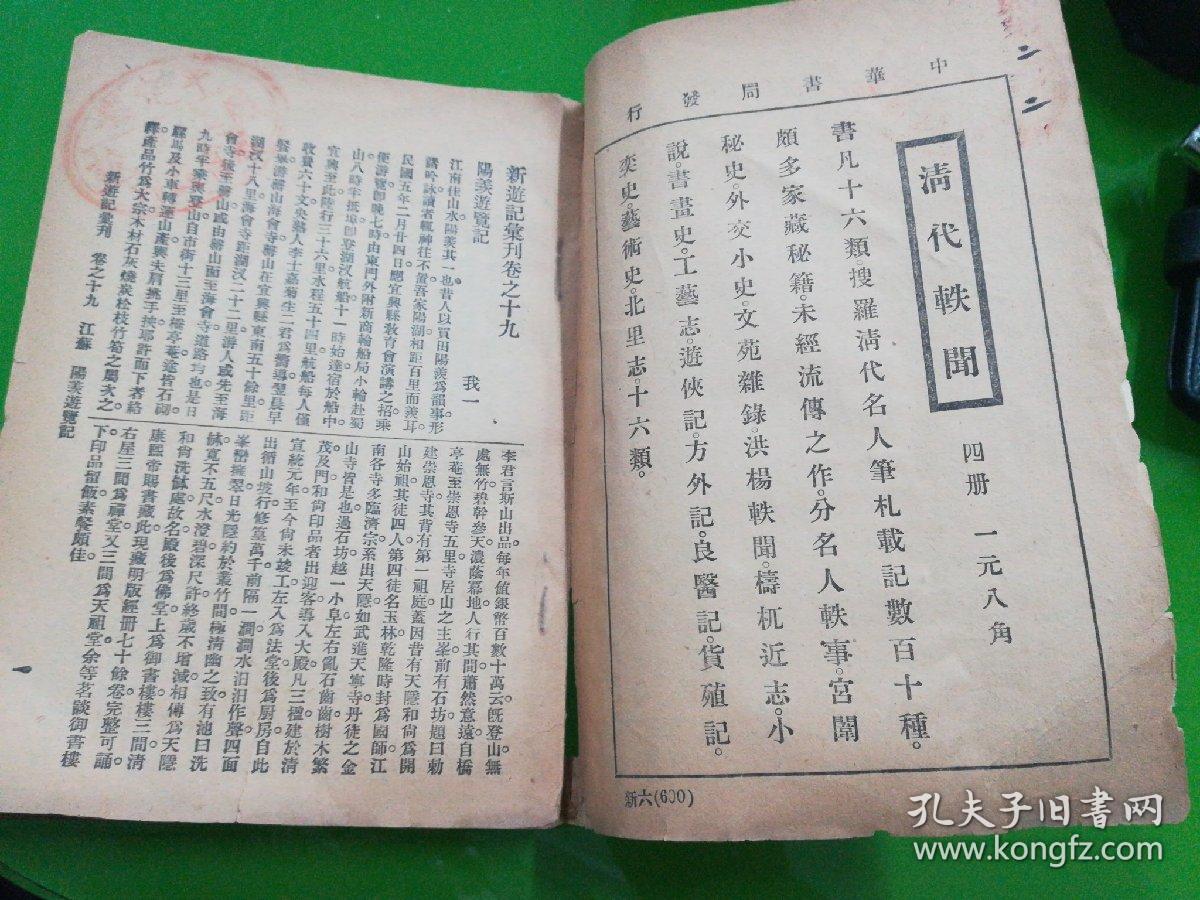 中華書局發行
清代軼聞
四册 一元八角
書凡十六類。搜羅清代名人筆札載記數百十種。
頗多家藏秘籍。未經流傳之作。分名人軼事。宮闈
秘史。外交小史。文苑雜錄。洪楊軼聞。檮杌近志。小
說。書畫史。工藝志。遊俠記。方外記。良醫記。貨殖記。
奕史。藝術史。北里志。十六類。
新六(600)
二二
新遊記彙刊卷之十九
陽羨遊覽記
我一
江南佳山水陽羨其一也昔人以買田陽羨爲韻事形
諸吟詠讀者輒神往不置吾家陽湖相距百里而羨耳
民國五年二月廿四日應宜興縣敎育會演講之招乘
便游覽即晚七時由東門外附新商輪船局小輪赴蜀
山八時半抵埠即登湖㳇航船十一時始達宿於船中
宜興至此陸行三十六里水程五十四里航船每人僅
收費六十文央熟人李士嘉菊生二君爲嚮導翌晨早
餐畢游磬山海會寺磬山在宜興縣東南五十餘里距
湖㳇十八里海會寺距湖㳇二十二里游人或先至海
會寺後至磬山或由磬山而至海會寺道路均可也是日
九時半乘輿登山自市街十三里至橋亭菴途皆石磵
騾馬及小車轉運山產與夫肩挑手挾耶許而下者絡
繹產品竹爲大宗木材石灰燒炭松枝竹筍之屬次之
新遊記彙刊 卷之十九 江蘇 陽羨遊覽記
李君言斯山出品每年値銀幣百數十萬云旣登山無
處無竹碧幹參天濃蔭冪地人行其間蕭然意遠自橋
亭菴至崇恩寺五里寺居山之主峯前有石坊題曰勅
建崇恩寺其背有第一祖庭蓋因昔有天隱和尙爲開
山始祖其徒四人第四徒名玉林乾隆時封爲國師江
南各寺多臨濟宗系出天隱如武進天寧寺丹徒之金
山寺皆是也過石坊越一小阜左右亂石齒齒樹木繁
茂及門和尙印品者出迎客導入大殿凡三楹建於清
宣統元年至今尙未竣工左入爲法堂後爲厨房自此
出循山坡行修篁萬千前隔一澗澗水汨汨作聲四面
峯巒擁翠日光隱約於叢竹間極清幽之致有池曰洗
鉢寬不五尺水澄碧深尺許終歲不增減相傳爲天隱
和尙洗鉢處故名殿後爲佛堂上爲御書樓樓三間清
康熙帝賜書藏此現藏明版經册七十餘卷完整可誦
右屋三間爲禪堂又三間爲天祖堂余等茗談御書樓
下印品留飯素餐頗佳
孔夫子旧書网
www.kongfz.com